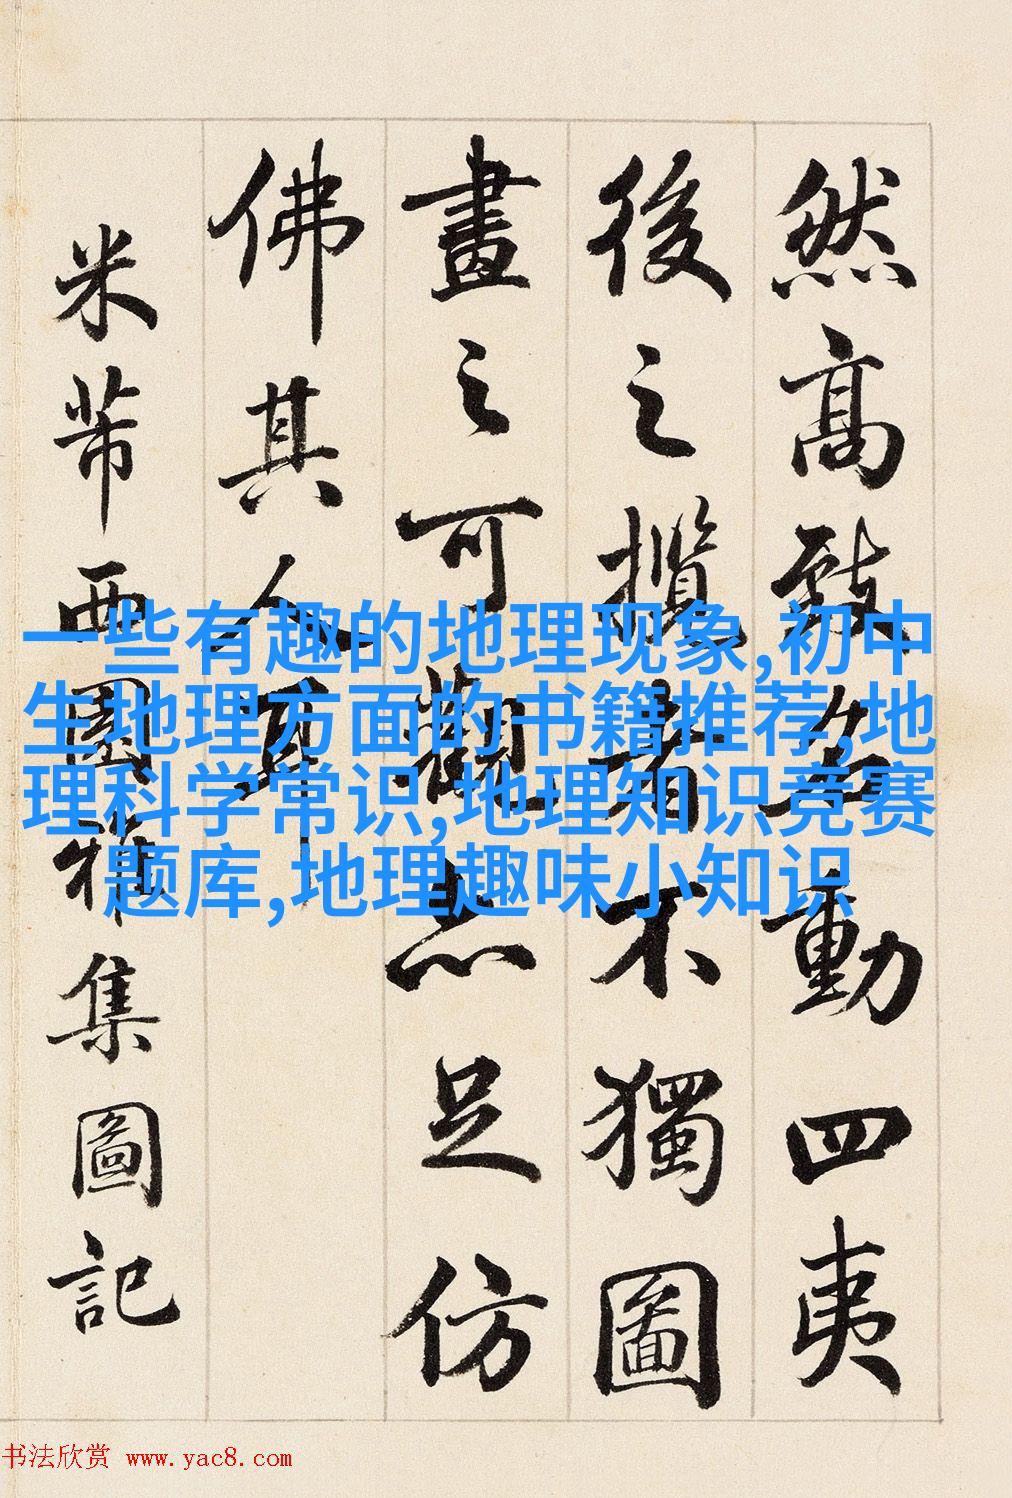 然高致名動四夷
後之攬者不獨圖
畫之可觀亦足仿
佛其人耳
米芾西園雅集圖記
一些有趣的地理现象,初中
生地理方面的书籍推荐,地
理科学常识,地理知识竞赛
题库,地理趣味小知识
书法欣赏 www.yac8.com